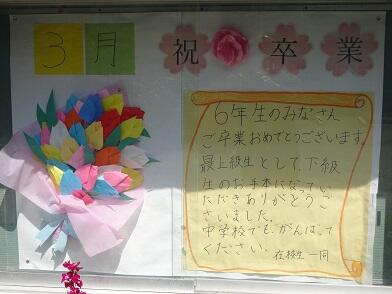 3月
祝卒業
6年生のみなさん
ご卒業おめでとうございます
最上級生として、下級
生のお手本になってい
ただきありがとうご
ざいました。
中学校でも、がんばって
ください。
在校生一同